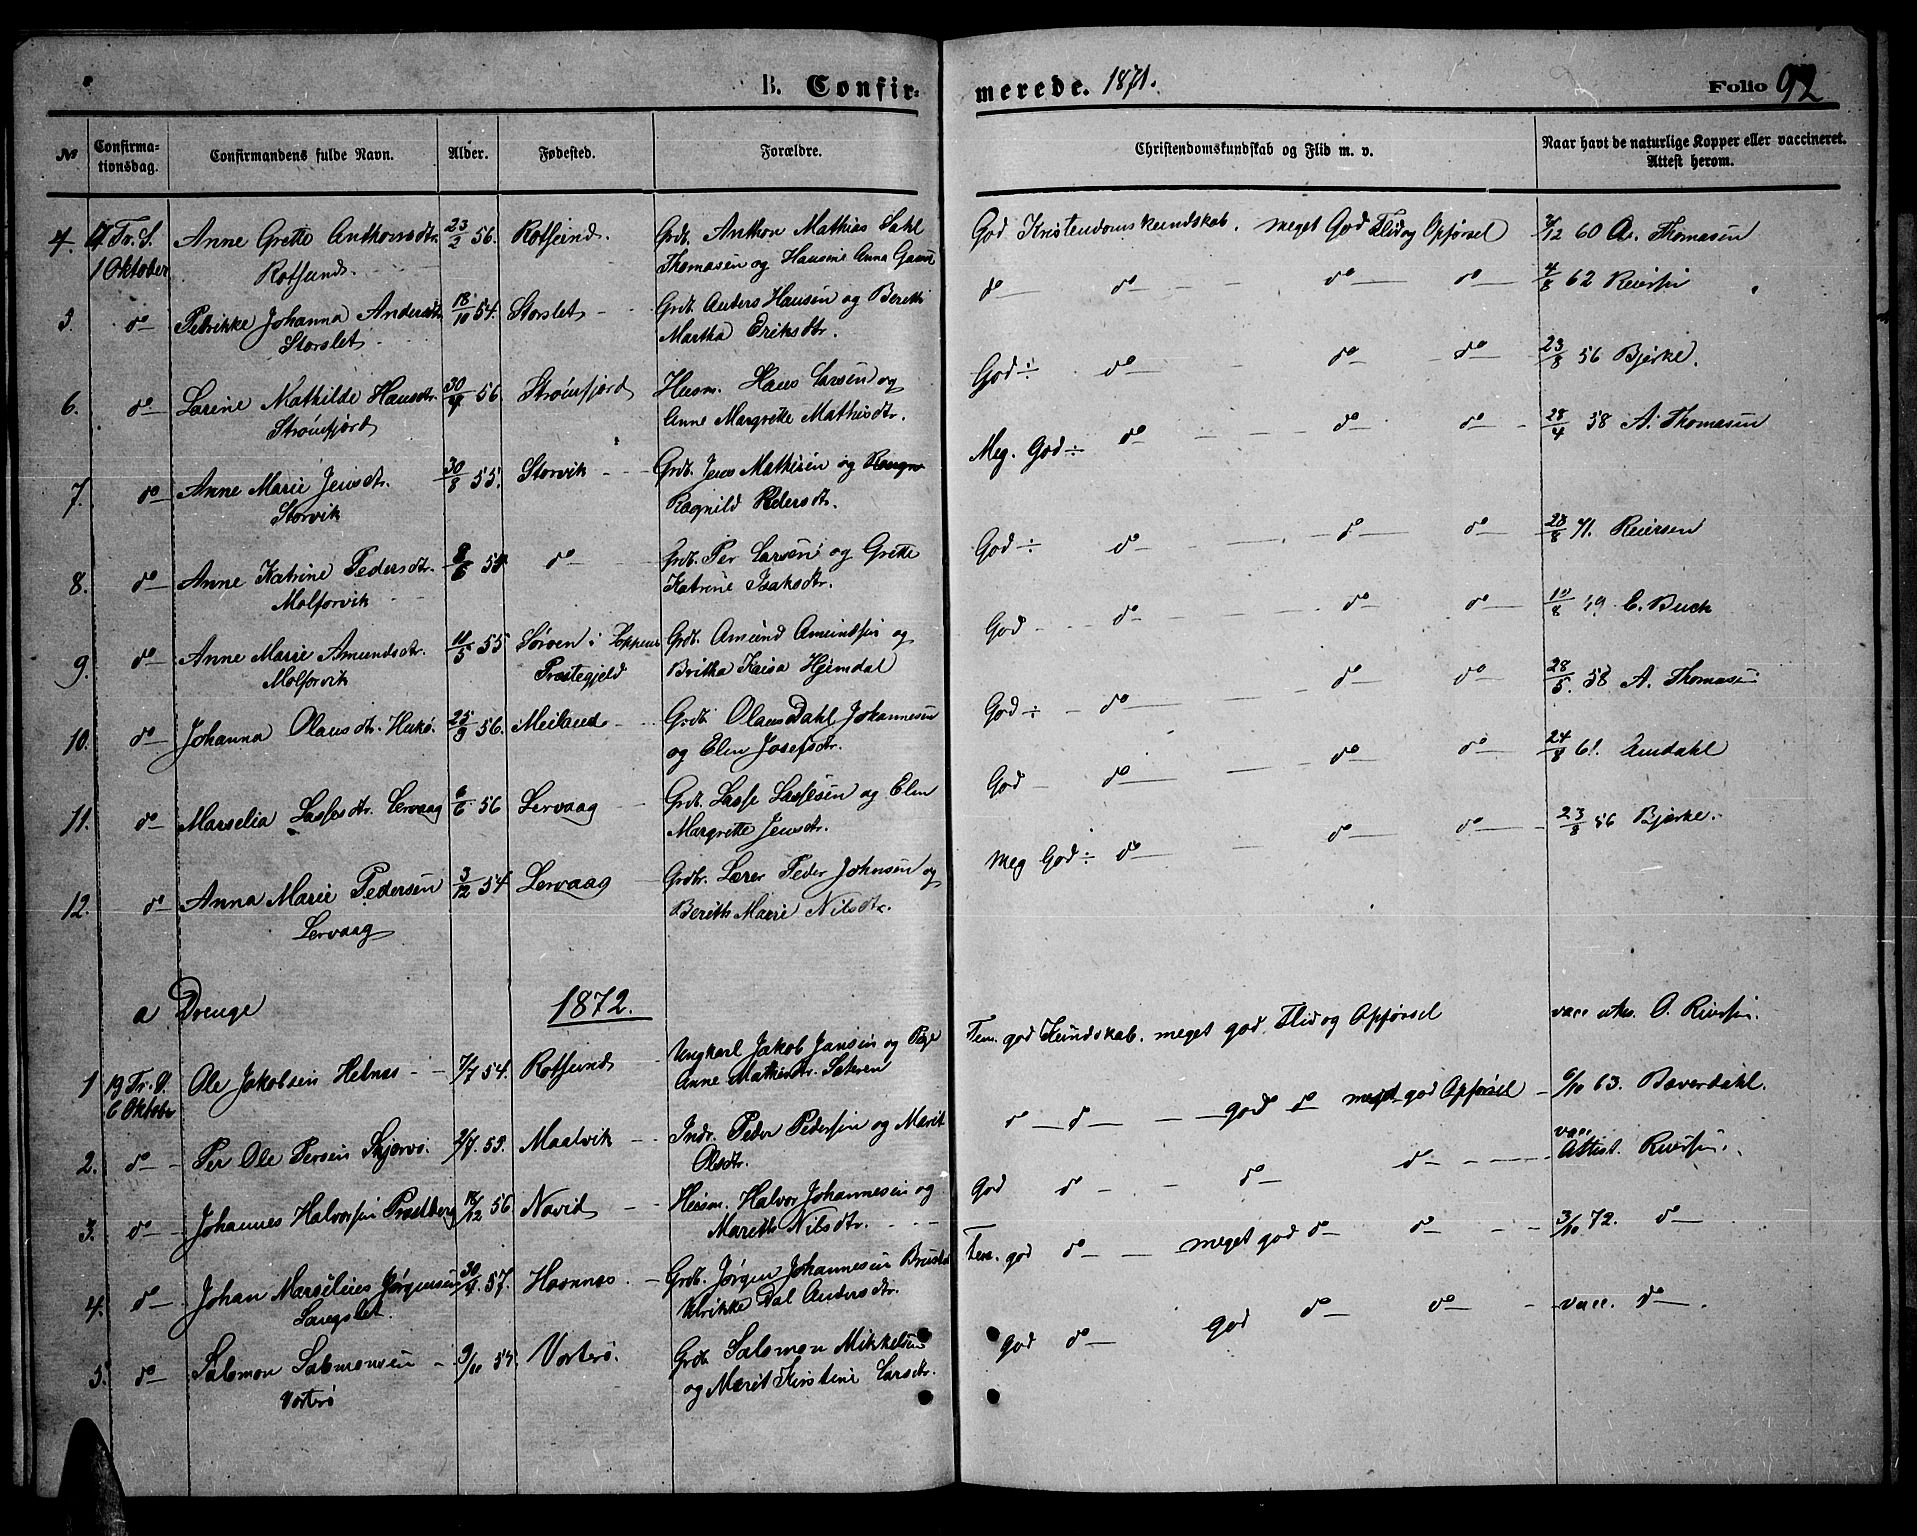 B. Confir-
merede. 1871.
Folio 92
№
Confirma-
tionsdag.
Confirmandens fulde Navn.
Alder.
Fødested.
Forældre.
Christendomskundskab og Flid m. v.
Naar havt de naturlige Kopper eller vaccineret.
Attest herom.
4. 17 Tr. S. Anne Grette Anthonsdtr. 23/2 56. Rotsund. Grdb. Anthon Mathias Dahl God Kristendomskundskab. meget God Flid og Opførsel 3/12 60 A. Thomasen
1 Oktober Rotsund. Thomasen og Hansine Anna
do do do do 4/8 62 Reiersen
5. do Petrikke Johanna Andersdtr. 18/10 54. Storslet Grdb. Anders Hansen og Berith
Storslet Martha Eriksdtr.
God ÷ do do do 23/8 56 Bjerke.
6. do Larine Mathilde Hansdtr. 30/4 56. Strømfjord Husm. Hans Larsen og
Strømfjord Anne Margrethe Mathisdtr.
Meg. God ÷ do do do 28/4 58 A. Thomasen
7. do Anne Marie Jensdtr. 30/8 55. Storvik Grdb. Jens Mathisen og
Storvik Ragnild Pedersdtr.
God ÷ do do do 28/8 71. Reiersen
8. do Anne Katrine Pedersdtr. 8/6 do Grdb. Per Larsen og Grette
Molforvik Katrine Isaksdtr.
God do do do 10/8 59. C. Buck
9. do Anne Marie Amundsdtr. 11/5 55 Sørøen i Loppens Grdb. Amund Amundsen og
Molforvik Præstegjeld Britha Kaisa Hjemdal
God ÷ do do do 28/5. 58 A. Thomasen
10. do Johanna Olausdtr. Hukø. 25/9 56. Meiland Grdb. Olaus Dahl Johannesen
og Elen Josefsdtr.
God do do do 24/8 61. Amdahl
11. do Marselia Lassesdtr. Lervaag 6/6 56 Lervaag Grdb. Lasse Lassesen og Elen
Margrette Jensdtr.
meg God ÷ do do do 23/8 56 Bjerke.
12. do Anna Marie Pedersen 3/12 54. Lervaag Grdbr. Lærer Peder Johnsen og
Lervaag Berith Marie Nilsdtr.
a Drenge 1872.
1 19 Tr. S. Ole Jakobsen Helnæs 7/7 54. Rotsund Ungkarl Jakob Jansen og Pige Tem. god Kundskab. meget god Flid og Opførsel
6 Oktober Anne Mathisdtr. Sateren
2. do Per Ole Persen Skjervø. 2/7. 55. Maalvik Indr. Peder Pedersen og Marit do do god do meget god Opførsel 6/10 63. Bæverdahl.
Olsdtr.
3. do Johannes Halvorsen 18/12 56 Navid Husm. Halvor Johannesen og God do do do vacc. Attest. Reiersen.
Mareth Nilsdtr.
4. do Johan Marselius Jørgensen 30/4. 57. Havnnæs. Grdb. Jørgen Johannesen Tem. god do meget god do do 3/10 72. do
Langslet. Ulrikke Dal Andersdtr.
5. do Salomon Salomonsen 9/10 54. Vorterø. Grdb. Salomon Mikkelsen god do god do do vacc. do
Vorterø og Marit Kirstine Larsdtr.